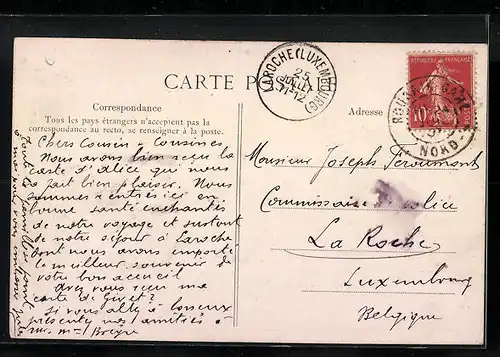 CARTE POSTALE
Correspondance
Tous les pays étrangers n'acceptent pas la
correspondance au recto, se renseigner à la poste.
Adresse
LAROCHE (LUXEMBOURG)
25
JUILLET
12
REPUBLIQUE FRANÇAISE
10
NORD
Chers Cousin & Cousines
Nous avons bien reçu la
carte d'Alice qui nous
a fait bien plaisir. Nous
sommes rentrés ici en
bonne santé enchantés
de notre voyage et surtout
de notre séjour à Laroche
dont nous avons emporté
le meilleur souvenir de
votre bon accueil
avez vous reçu ma
carte de Givet?
Si vous allez à
présentez mes amitiés à
Mr. Mme
Monsieur Joseph
Commissaire police
La Roche
Luxembourg
Belgique